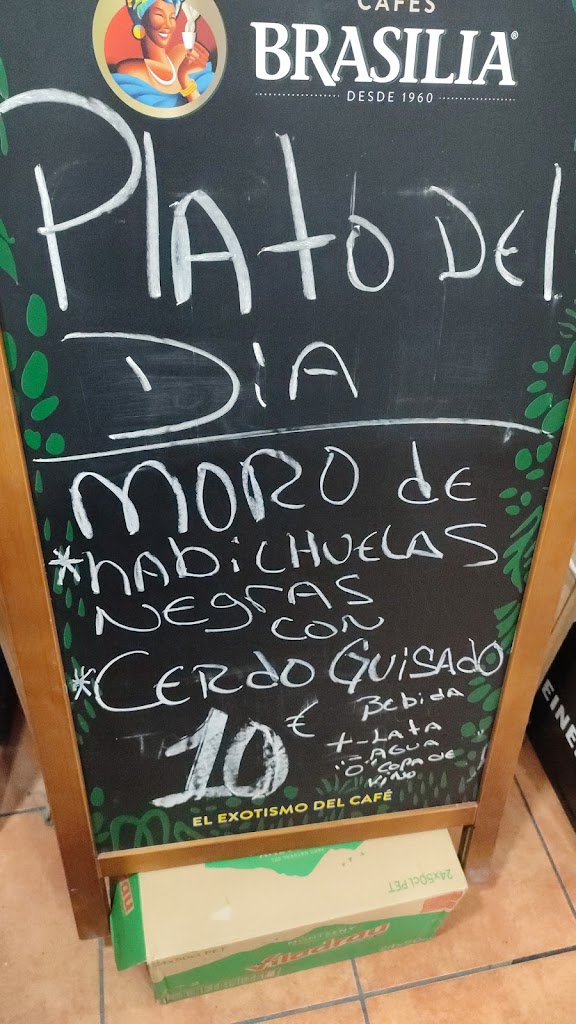 CAFÉS
BRASILIA
DESDE 1960
PlAto DEl
DiA
MORO dE
*hABiCHUELAS
NEgrAS
CON
*CERdO GUiSADO
10€
BEbidA
+-LAtA
AGUA
"O" COPA DE
ViNO
EL EXOTISMO DEL CAFÉ
24x50cl PET